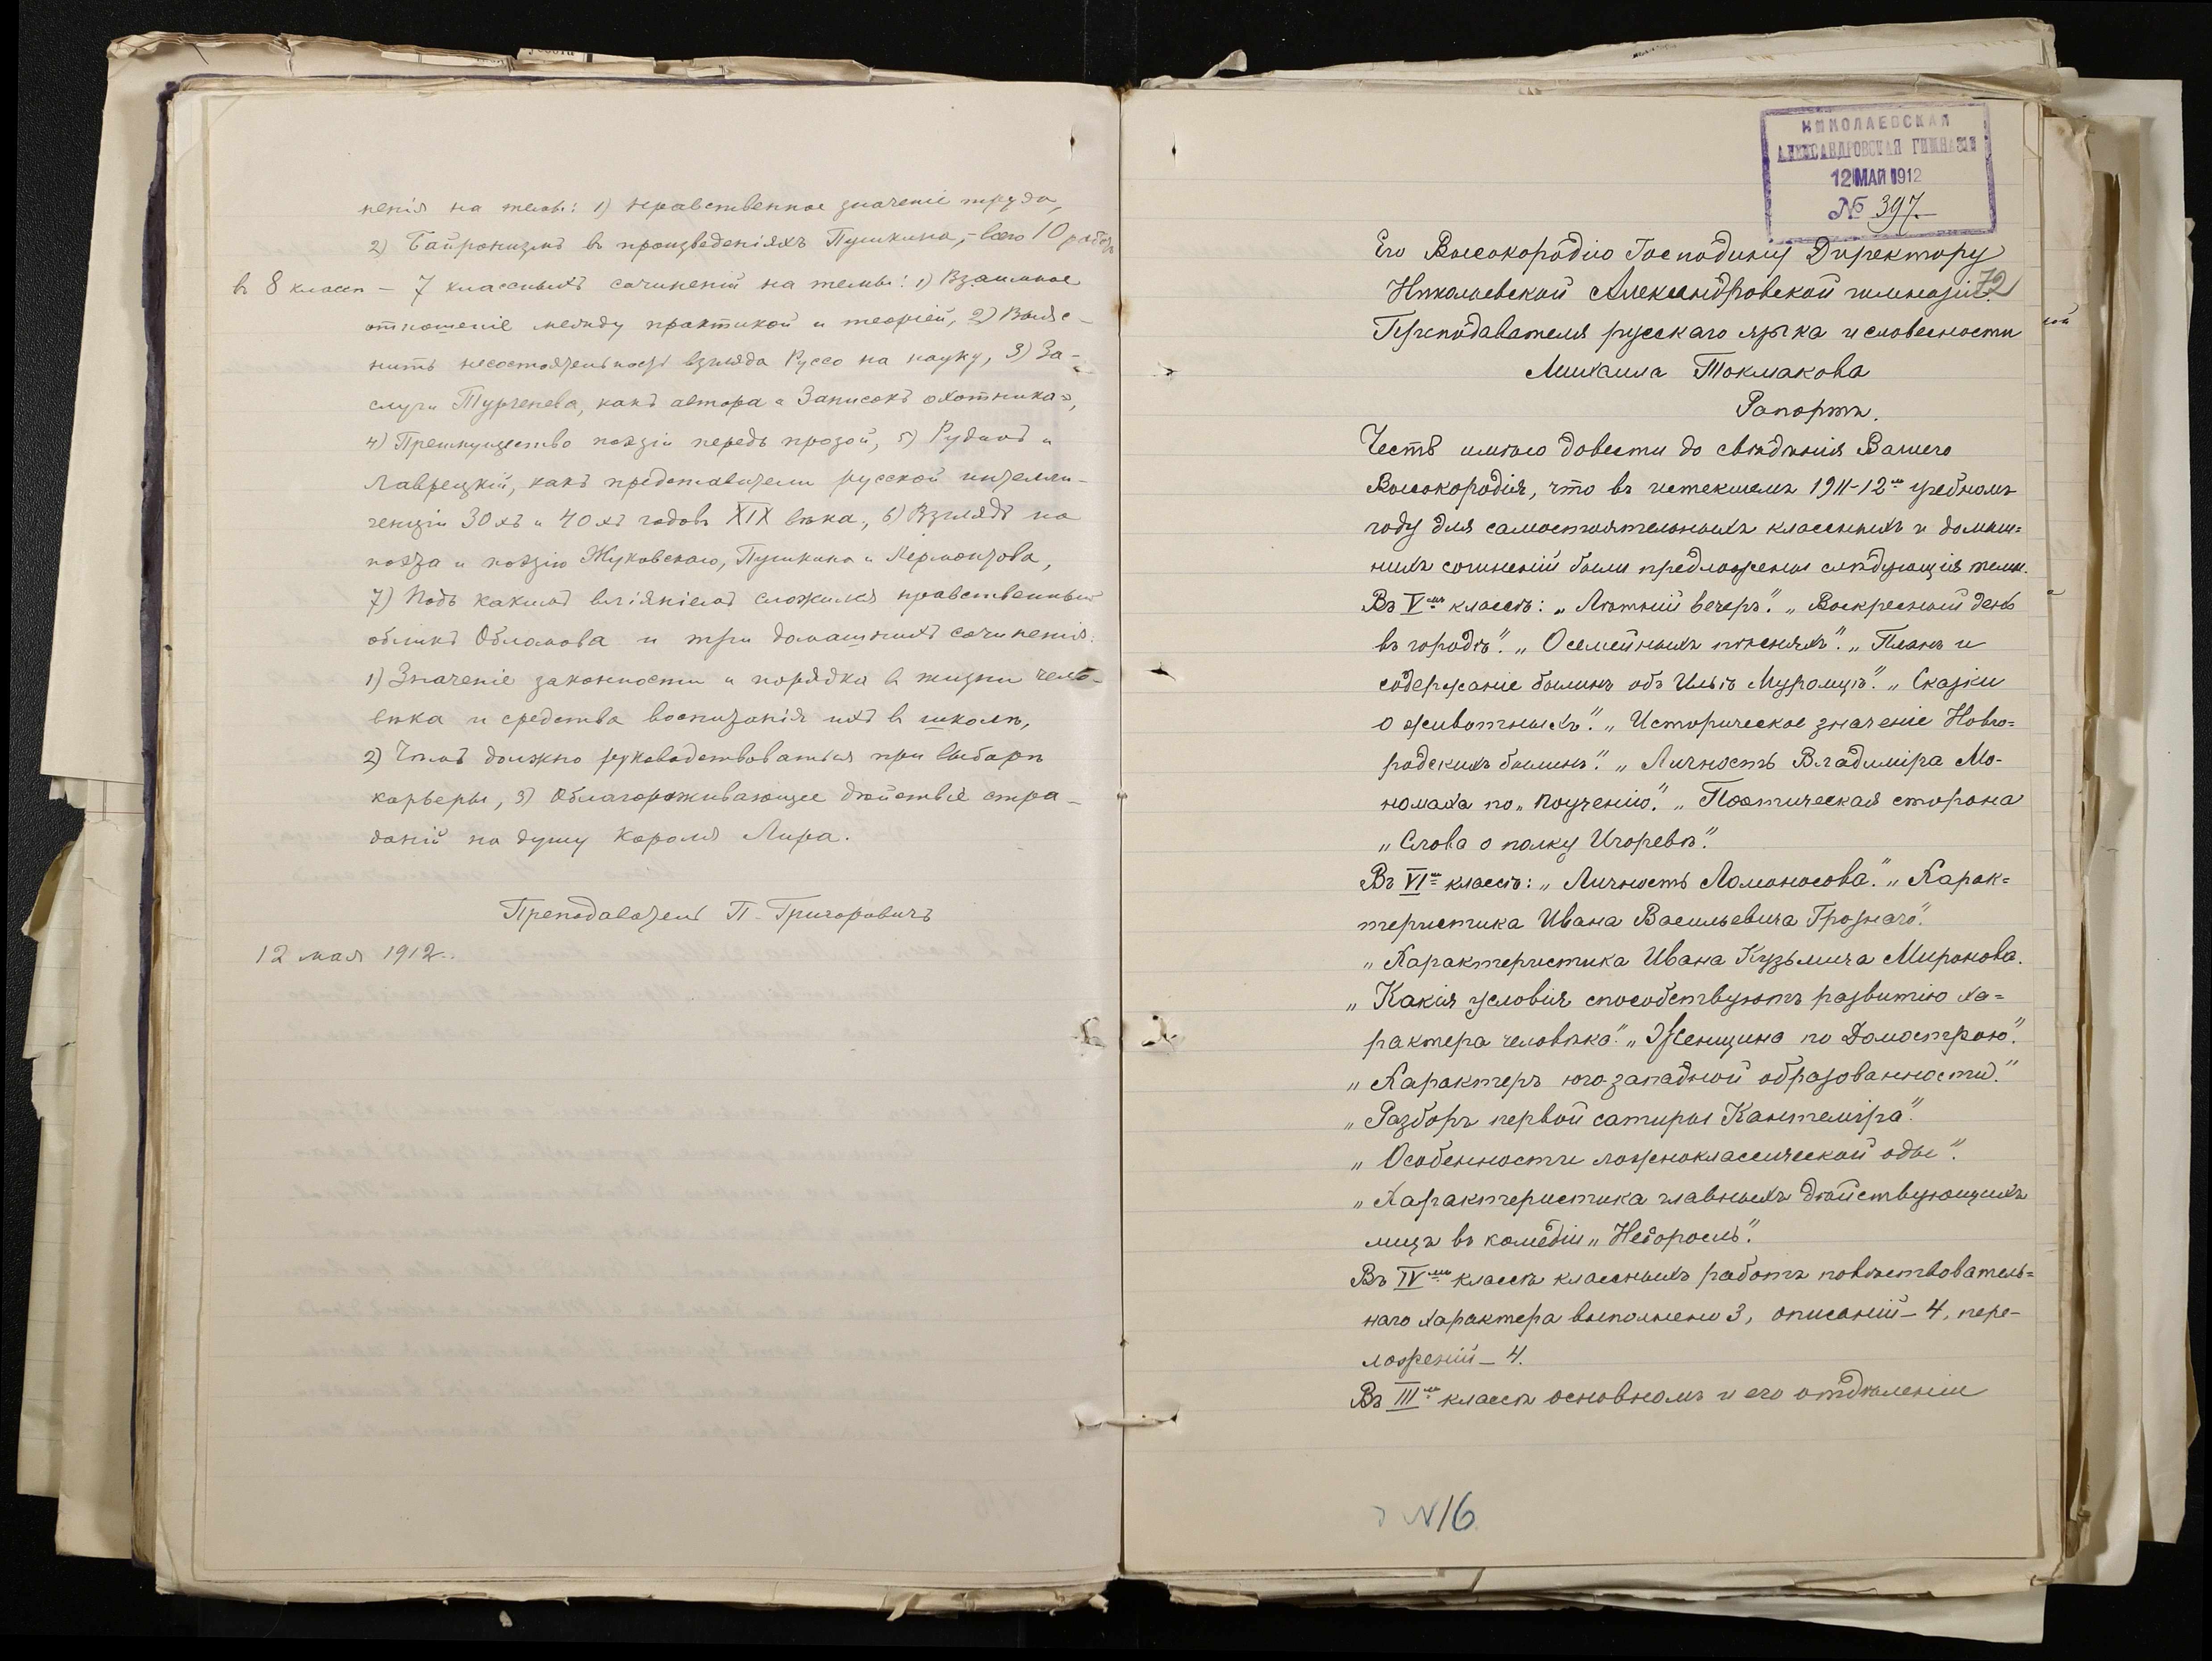 ненія на темы: 1) нравственное значеніе труда,
2) Байронизмъ въ произведеніяхъ Пушкина, – всего 10 работъ
въ 8 классѣ – 7 классныхъ сочиненій на темы: 1) Взаимное
отношеніе между практикой и теоріей, 2) Выяс-
нить несостоятельность взгляда Руссо на науку, 3) За-
слуги Тургенева, какъ автора «Записокъ охотника»,
4) Преимущество поэзіи передъ прозой, 5) Рудинъ и
Лаврецкій, какъ представители русской интелли-
генціи 30хъ и 40хъ годовъ XIX вѣка, 6) Взглядъ на
поэта и поэзію Жуковскаго, Пушкина и Лермонтова,
7) Подъ какимъ вліяніемъ сложился нравственный
обликъ Обломова и три домашнихъ сочиненія:
1) Значеніе законности и порядка въ жизни чело-
вѣка и средства воспитанія ихъ въ школѣ,
2) Чѣмъ должно руководствоваться при выборѣ
карьеры, 3) Облагораживающее дѣйствіе стра-
даній на душу Короля Лира.
Преподаватель П. Григоровичъ
12 мая 1912.
НИКОЛАЕВСКАЯ
АЛЕКСАНДРОВСКАЯ ГИМНАЗІЯ
12 МАЯ 1912
№ 397.
Его Высокородію Господину Директору
Николаевской Александровской гимназіи.
72
Преподавателя русскаго языка и словесности
Михаила Токмакова
Рапортъ.
Честь имѣю довести до свѣдѣнія Вашего
Высокородія, что въ истекшемъ 1911-12мъ учебномъ
году для самостоятельныхъ классныхъ и домаш=
нихъ сочиненій были предложены слѣдующія темы.
Въ Vмъ классѣ: „Лѣтній вечеръ". „Воскресный день
въ городѣ". „О семейныхъ пѣсняхъ". „Планъ и
содержаніе былинъ объ Ильѣ Муромцѣ". „Сказки
о животныхъ". „Историческое значеніе Новго=
родскихъ былинъ". „Личность Владиміра Мо-
номаха по „Поученію". „Поэтическая сторона
„Слова о полку Игоревѣ".
Въ VIмъ классѣ: „Личность Ломоносова". „Харак=
теристика Ивана Васильевича Грознаго".
„Характеристика Ивана Кузьмича Миронова.
„Какія условія способствуютъ развитію ха=
рактера человѣка". „Женщина по Домострою".
„Характеръ юго-западной образованности".
„Разборъ первой сатиры Кантеміра".
„Особенности ложноклассической оды".
„Характеристика главныхъ дѣйствующихъ
лицъ въ комедіи „Недоросль".
Въ IVмъ классѣ классныхъ работъ повѣствователь=
наго характера выполнено 3, описаній – 4, пере-
ложеній – 4.
Въ IIIмъ классѣ основномъ и его отдѣленіи
N16